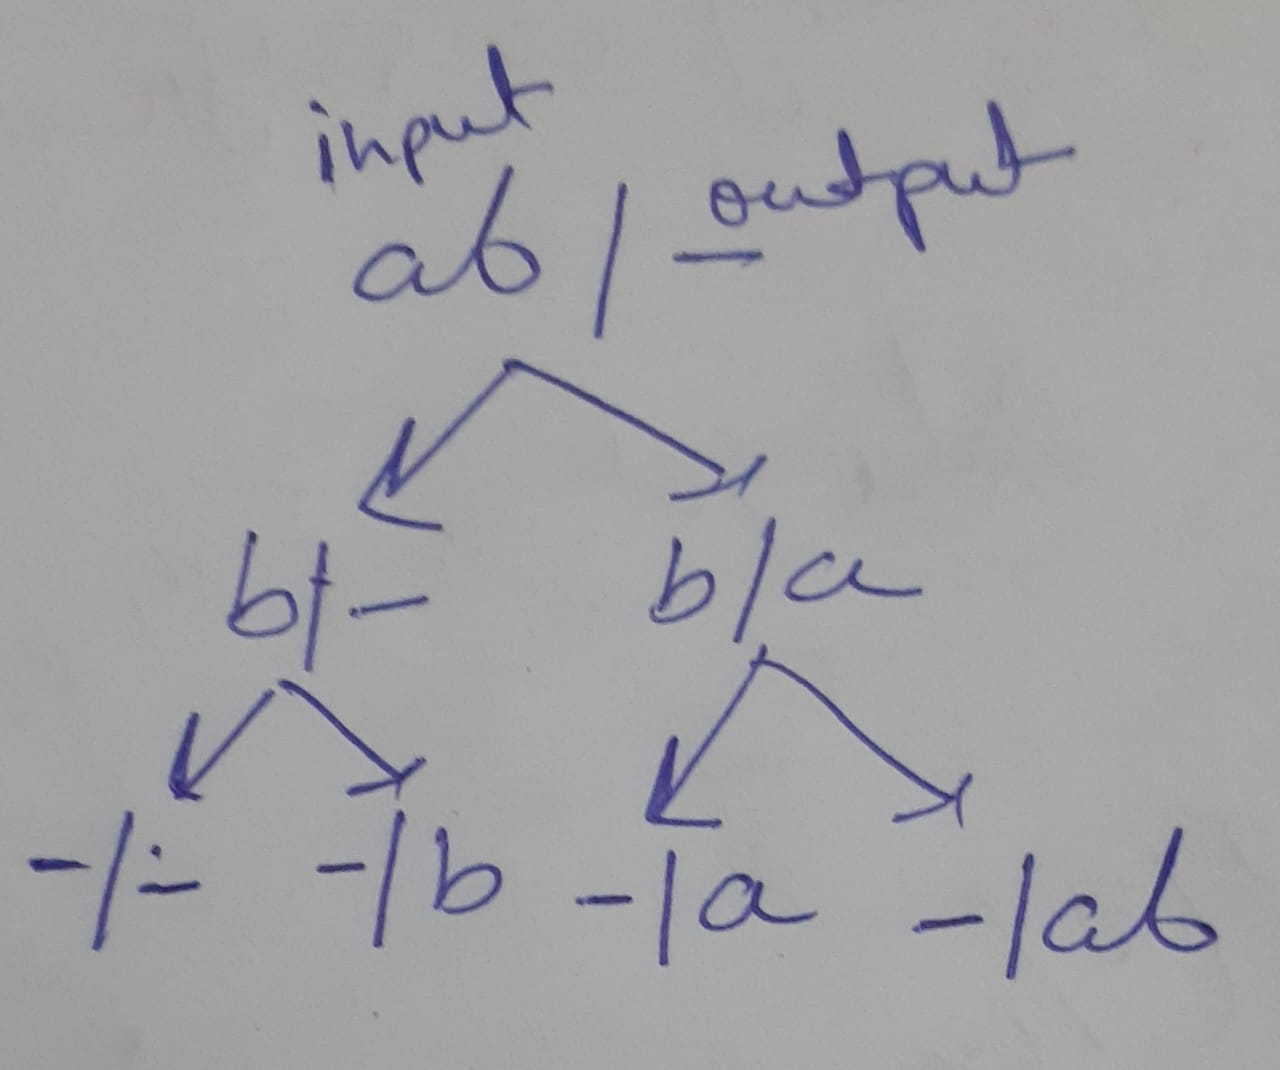 input
output
ab / -
b/- b/a
-/- -/b -/a -/ab